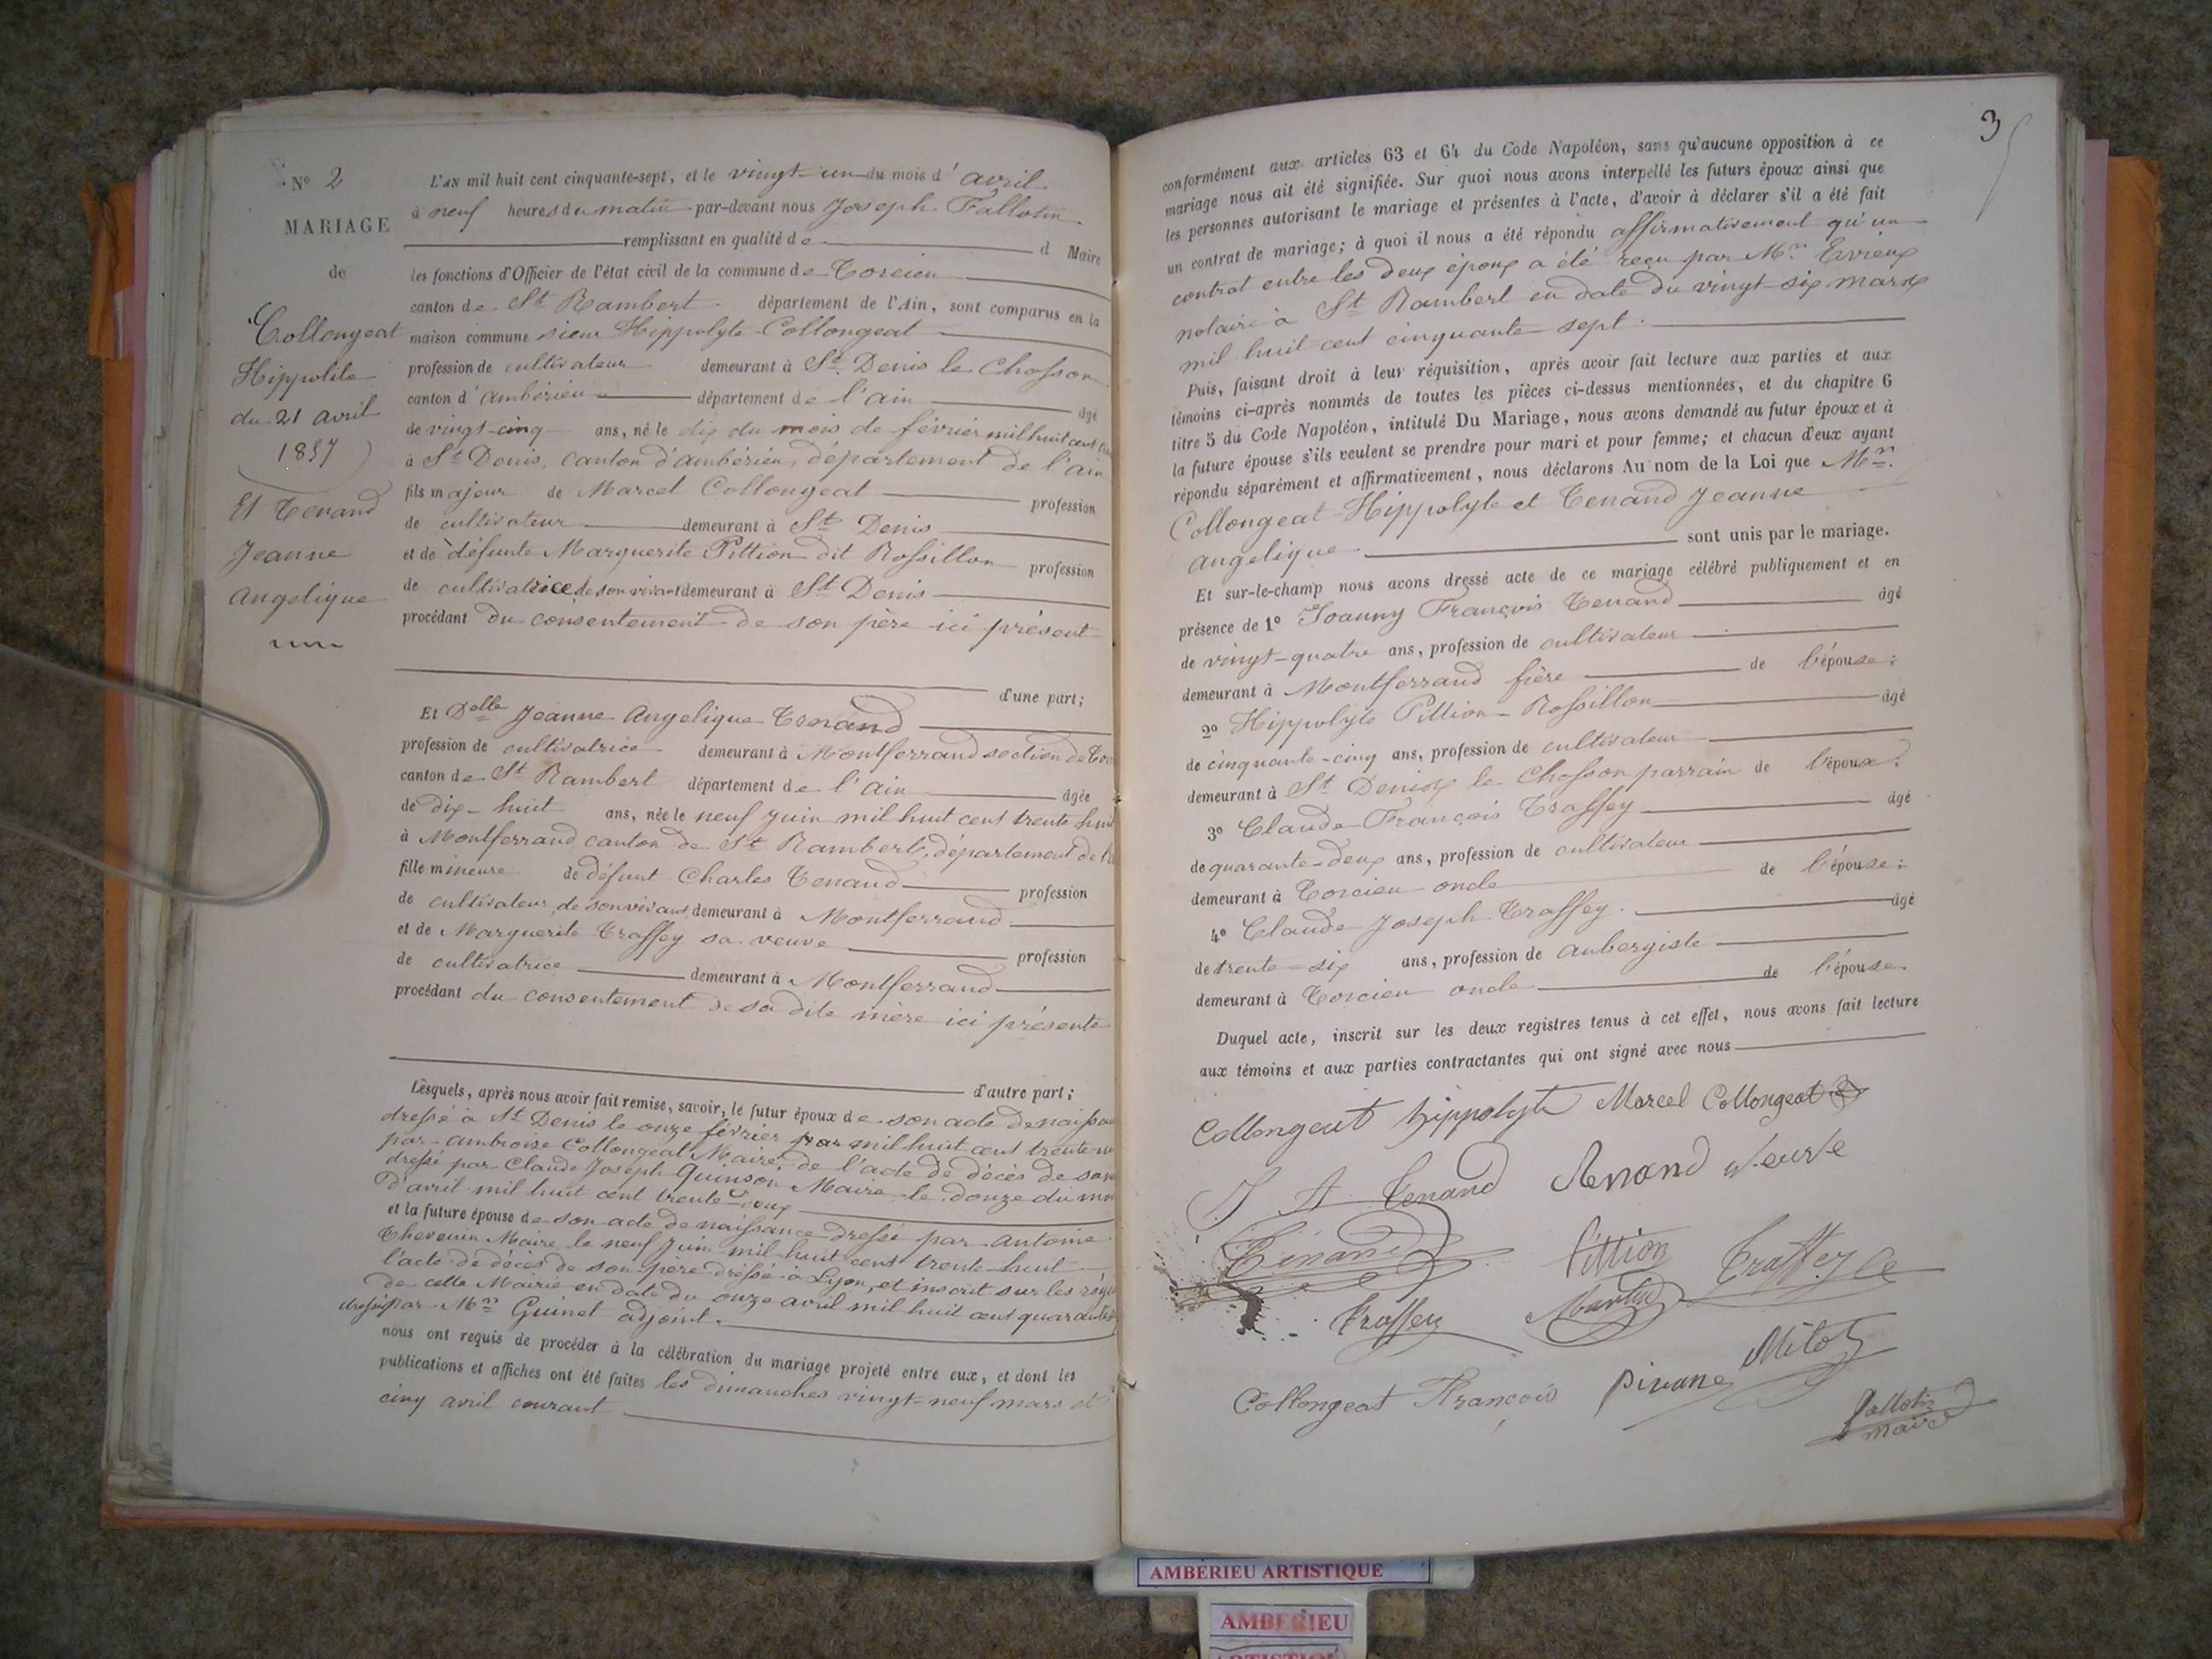 N° 2
MARIAGE
de
Collongeat
Hippolite
du 21 avril
1857
Et Tenand
Jeanne
Angelique
L'AN mil huit cent cinquante-sept, et le vingt-un du mois d'avril
à neuf heures du matin par-devant nous Joseph Fallotin
remplissant en qualité de d Maire
les fonctions d'Officier de l'état civil de la commune de Torcieu
canton de St Rambert département de l'Ain, sont comparus en la
maison commune sieur Hippolyte Collongeat
profession de cultivateur demeurant à St Denis le Chosson
canton d'ambérieu département de l'ain âgé
de vingt-cinq ans, né le dix du mois de février mil huit cent
à St Denis, canton d'ambérieu, département de l'ain
fils majeur de Marcel Collongeat profession
de cultivateur demeurant à St Denis
et de défunte Marguerite Pittion dit Rossillon profession
de cultivatrice de son vivant demeurant à St Denis
procédant du consentement de son père ici présent
d'une part;
Et Delle Jeanne Angelique Tenand
profession de cultivatrice demeurant à Montferrand section de
canton de St Rambert département de l'ain âgée
de dix-huit ans, née le neuf juin mil huit cent trente huit
à Montferrand canton de St Rambert, département de
fille mineure de défunt Charles Tenand profession
de cultivateur, de son vivant demeurant à Montferrand
et de Marguerite Traffey sa veuve profession
de cultivatrice demeurant à Montferrand
procédant du consentement de sa dite mère ici présente
d'autre part;
Lesquels, après nous avoir fait remise, savoir, le futur époux de son acte de naissance
dressé à St Denis le onze février mil huit cent trente
par ambroise Collongeat Maire, de l'acte de décès de sa
dressé par Claude Joseph Quinson Maire le douze du
d'avril mil huit cent trente deux
et la future épouse de son acte de naissance dressé par antoine
Thevenin Maire le neuf juin mil huit cent trente-huit
l'acte de décès de son père dressé à Lyon, et inscrit sur les
de cette Mairie en date du onze avril mil huit cent quarante
dressé par Mrr Guinet adjoint.
nous ont requis de procéder à la célébration du mariage projeté entre eux, et dont les
publications et affiches ont été faites les dimanches vingt-neuf mars et
cinq avril courant
3
conformément aux articles 63 et 64 du Code Napoléon, sans qu'aucune opposition à ce
mariage nous ait été signifiée. Sur quoi nous avons interpellé les futurs époux ainsi que
les personnes autorisant le mariage et présentes à l'acte, d'avoir à déclarer s'il a été fait
un contrat de mariage; à quoi il nous a été répondu affirmativement qu'un
contrat entre les deux époux a été reçu par Mr Evreux
notaire à St Rambert en date du vingt-six mars
mil huit cent cinquante-sept.
Puis, faisant droit à leur réquisition, après avoir fait lecture aux parties et aux
témoins ci-après nommés de toutes les pièces ci-dessus mentionnées, et du chapitre 6
titre 5 du Code Napoléon, intitulé Du Mariage, nous avons demandé au futur époux et à
la future épouse s'ils veulent se prendre pour mari et pour femme; et chacun d'eux ayant
répondu séparément et affirmativement, nous déclarons Au nom de la Loi que Mr
Collongeat Hippolyte et Tenand Jeanne
angelique sont unis par le mariage.
Et sur-le-champ nous avons dressé acte de ce mariage célébré publiquement et en
présence de 1° Joanny François Tenand âgé
de vingt-quatre ans, profession de cultivateur
demeurant à Montferrand frère de l'épouse;
2° Hippolyte Pittion-Rossillon âgé
de cinquante-cinq ans, profession de cultivateur
demeurant à St Denis le Chosson parrain de l'époux;
3° Claude François Traffey âgé
de quarante-deux ans, profession de cultivateur
demeurant à Torcieu oncle de l'épouse;
4° Claude Joseph Traffey âgé
de trente-six ans, profession de aubergiste
demeurant à Torcieu oncle de l'épouse
Duquel acte, inscrit sur les deux registres tenus à cet effet, nous avons fait lecture
aux témoins et aux parties contractantes qui ont signé avec nous
Collongeat hippolyte Marcel Collongeat
J A Tenand Tenand veuve
Tenand Pittion Traffey
Traffey Martin
Collongeat François Pivane Milo
Fallotin
maire
AMBERIEU ARTISTIQUE
AMBERIEU
ARTISTIQUE